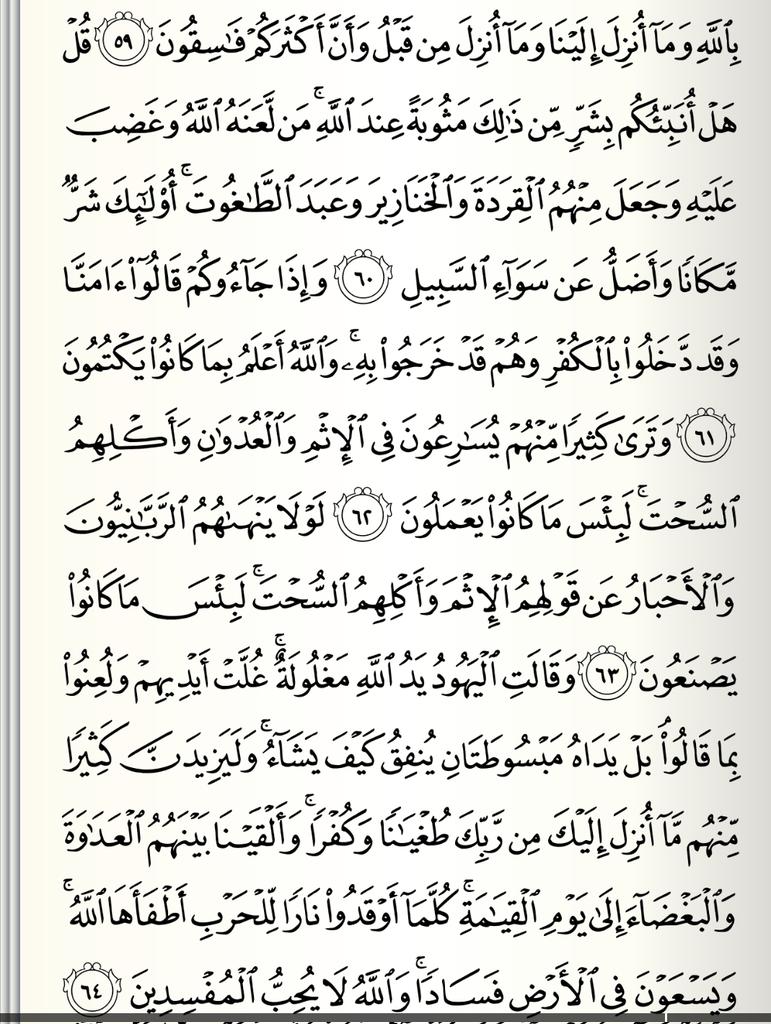 بِٱللَّهِ وَمَآ أُنزِلَ إِلَيْنَا وَمَآ أُنزِلَ مِن قَبْلُ وَأَنَّ أَكْثَرَكُمْ فَٰسِقُونَ ٥٩ قُلْ
هَلْ أُنَبِّئُكُم بِشَرٍّ مِّن ذَٰلِكَ مَثُوبَةً عِندَ ٱللَّهِ ۚ مَن لَّعَنَهُ ٱللَّهُ وَغَضِبَ
عَلَيْهِ وَجَعَلَ مِنْهُمُ ٱلْقِرَدَةَ وَٱلْخَنَازِيرَ وَعَبَدَ ٱلطَّٰغُوتَ ۚ أُو۟لَٰٓئِكَ شَرٌّ
مَّكَانًا وَأَضَلُّ عَن سَوَآءِ ٱلسَّبِيلِ ٦٠ وَإِذَا جَآءُوكُمْ قَالُوٓا۟ ءَامَنَّا
وَقَد دَّخَلُوا۟ بِٱلْكُفْرِ وَهُمْ قَدْ خَرَجُوا۟ بِهِۦ ۚ وَٱللَّهُ أَعْلَمُ بِمَا كَانُوا۟ يَكْتُمُونَ
٦١ وَتَرَىٰ كَثِيرًا مِّنْهُمْ يُسَٰرِعُونَ فِى ٱلْإِثْمِ وَٱلْعُدْوَٰنِ وَأَكْلِهِمُ
ٱلسُّحْتَ ۚ لَبِئْسَ مَا كَانُوا۟ يَعْمَلُونَ ٦٢ لَوْلَا يَنْهَىٰهُمُ ٱلرَّبَّٰنِيُّونَ
وَٱلْأَحْبَارُ عَن قَوْلِهِمُ ٱلْإِثْمَ وَأَكْلِهِمُ ٱلسُّحْتَ ۚ لَبِئْسَ مَا كَانُوا۟
يَصْنَعُونَ ٦٣ وَقَالَتِ ٱلْيَهُودُ يَدُ ٱللَّهِ مَغْلُولَةٌ ۚ غُلَّتْ أَيْدِيهِمْ وَلُعِنُوا۟
بِمَا قَالُوا۟ ۘ بَلْ يَدَاهُ مَبْسُوطَتَانِ يُنفِقُ كَيْفَ يَشَآءُ ۚ وَلَيَزِيدَنَّ كَثِيرًا
مِّنْهُم مَّآ أُنزِلَ إِلَيْكَ مِن رَّبِّكَ طُغْيَٰنًا وَكُفْرًا ۚ وَأَلْقَيْنَا بَيْنَهُمُ ٱلْعَدَٰوَةَ
وَٱلْبَغْضَآءَ إِلَىٰ يَوْمِ ٱلْقِيَٰمَةِ ۚ كُلَّمَآ أَوْقَدُوا۟ نَارًا لِّلْحَرْبِ أَطْفَأَهَا ٱللَّهُ ۚ
وَيَسْعَوْنَ فِى ٱلْأَرْضِ فَسَادًا ۚ وَٱللَّهُ لَا يُحِبُّ ٱلْمُفْسِدِينَ ٦٤